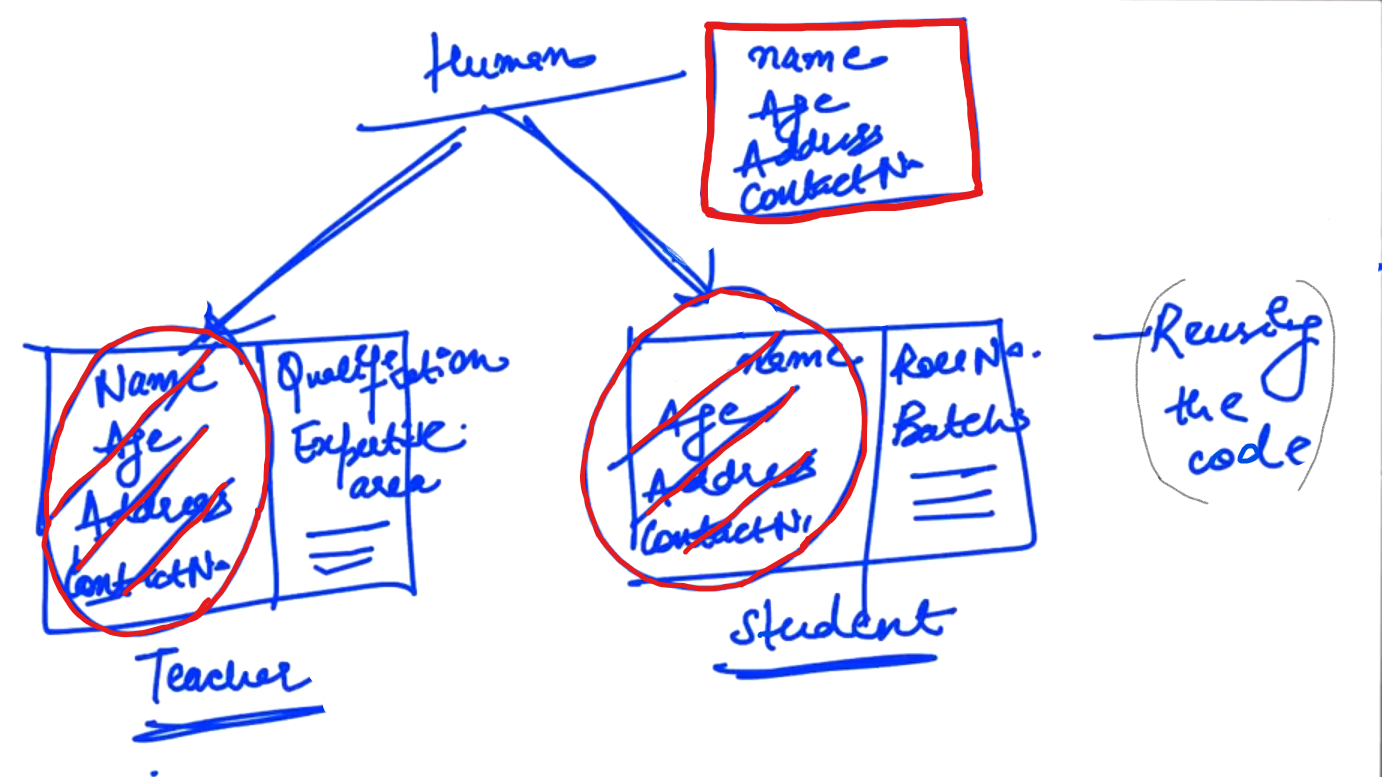 Human
name
Age
Address
Contact No
Name
Age
Address
Contact No.
Qualification
Expertise
area
name
Age
Address
Contact No.
Roll No.
Batch
Reusing
the
code
Teacher
Student